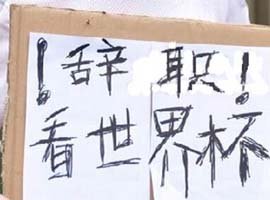 ！辞职！
看世界杯